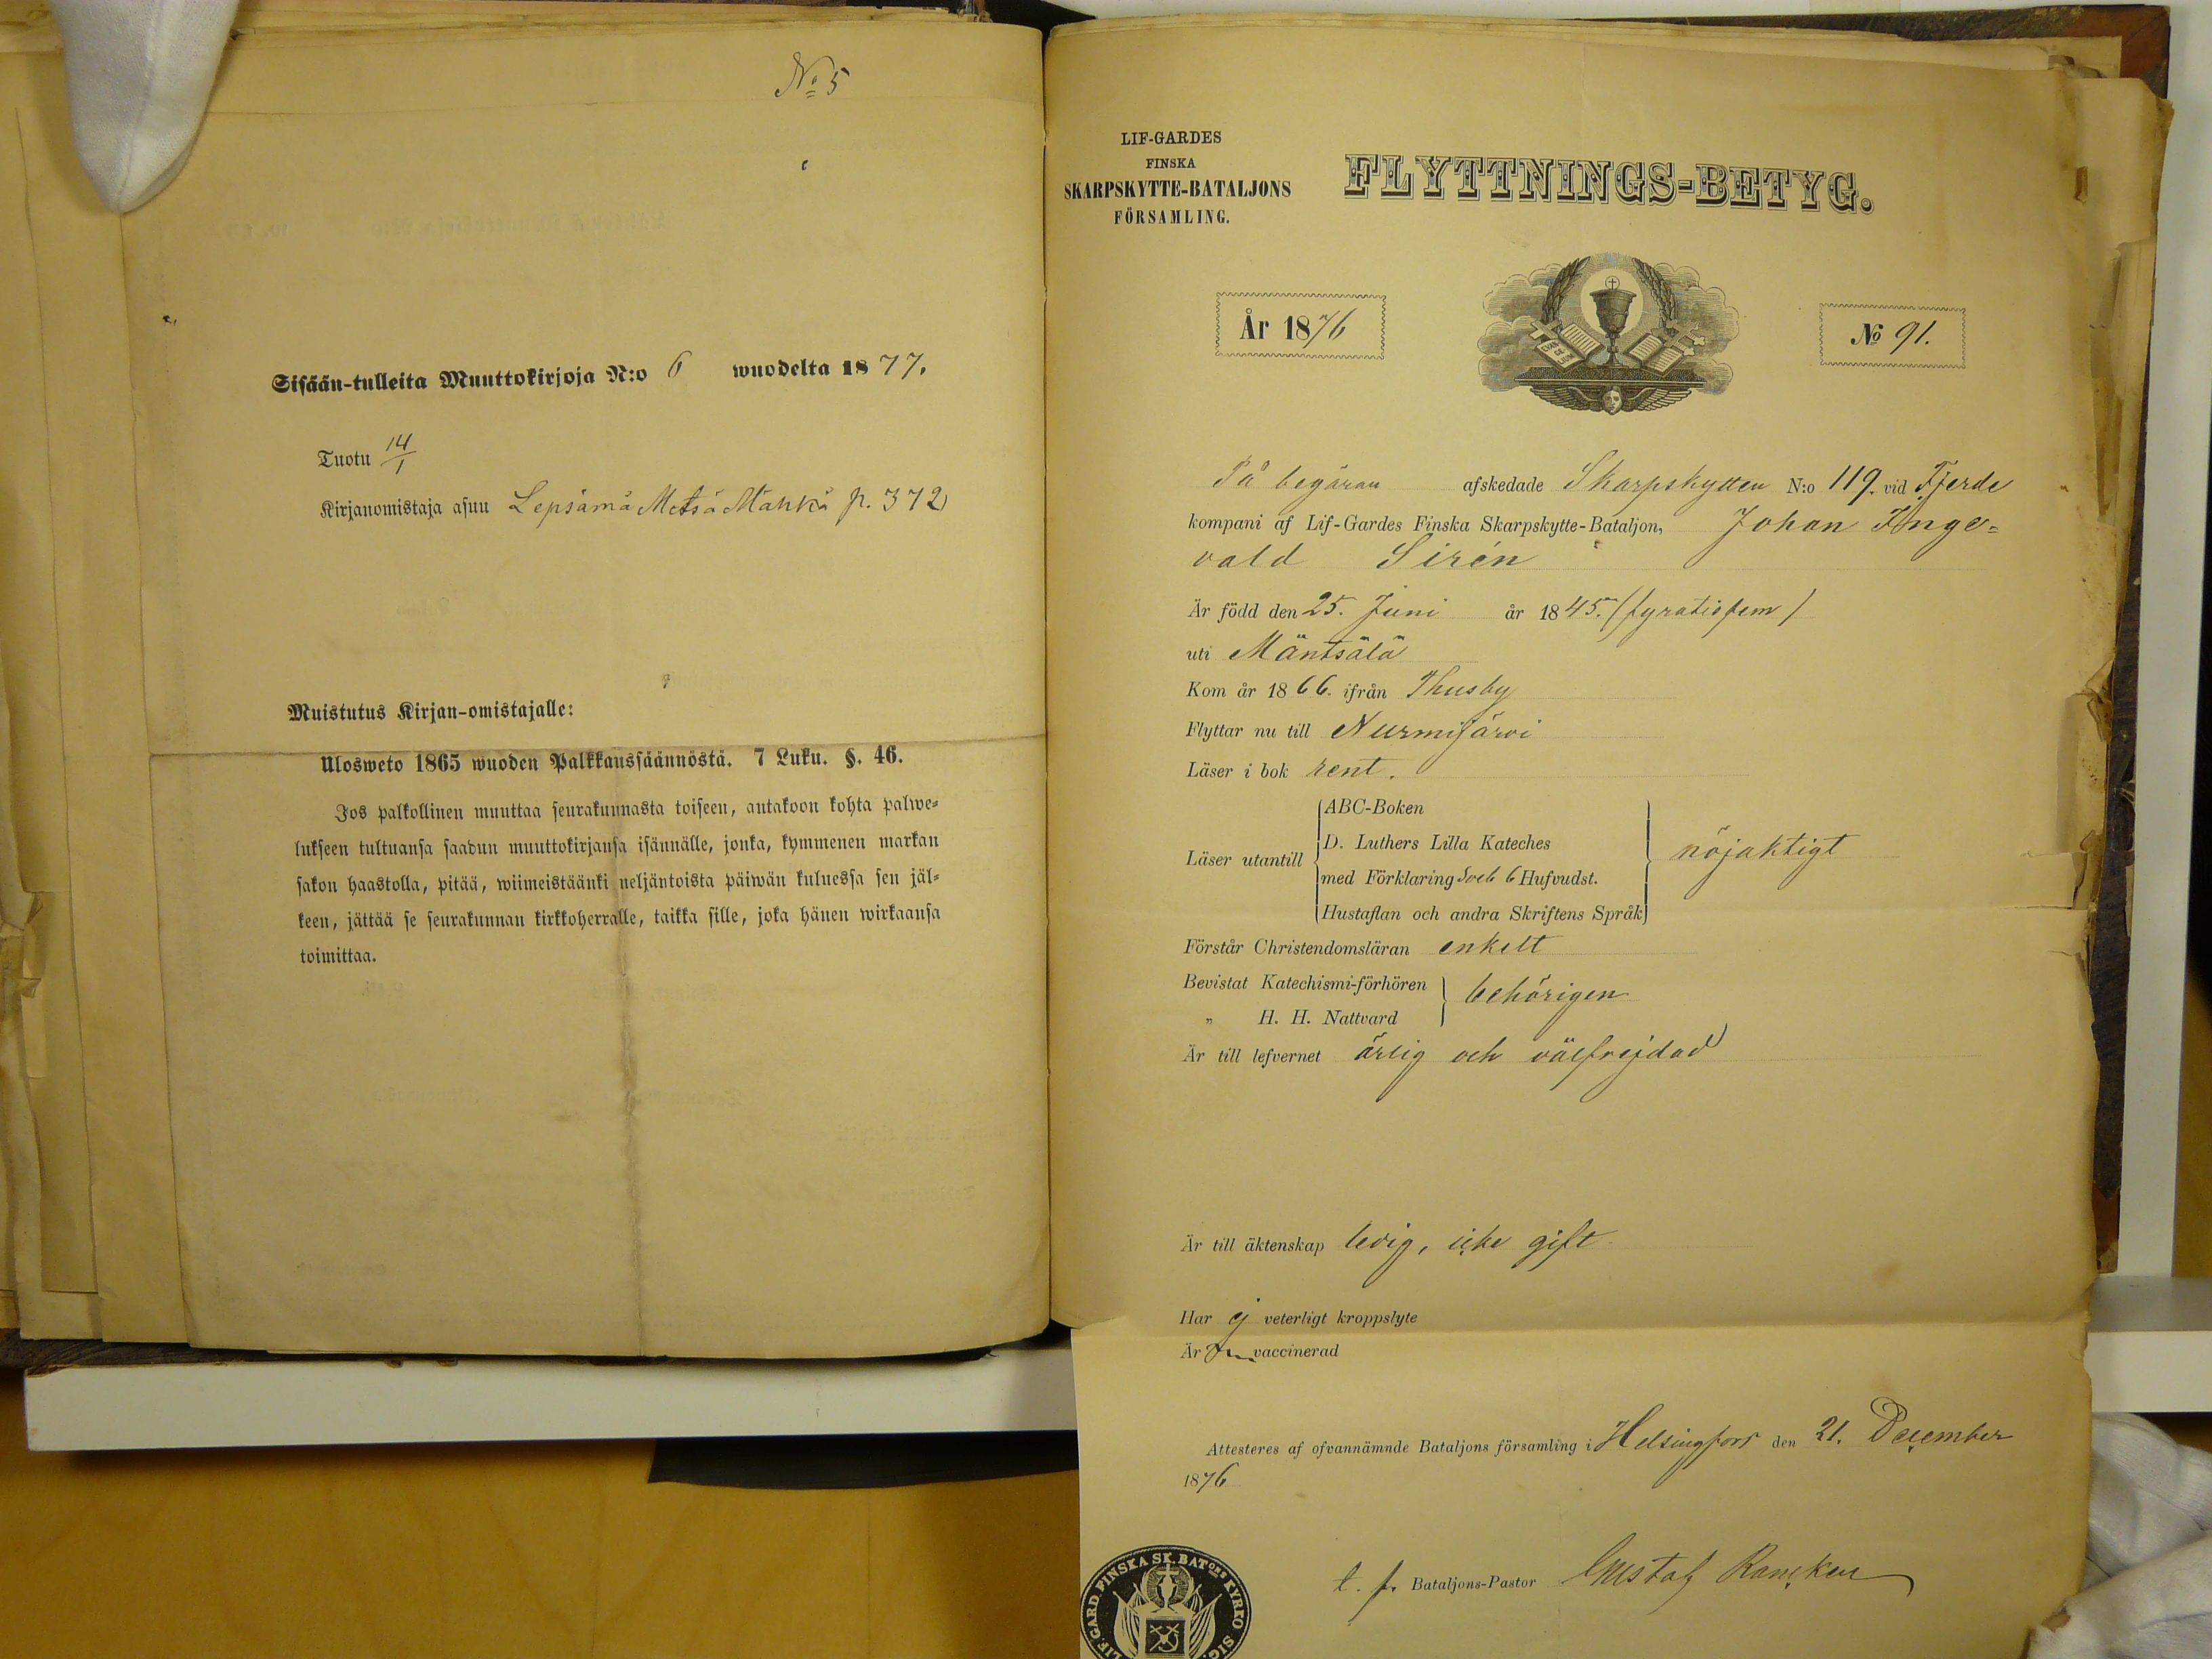 No 5
Sisään-tulleita Muuttokirjoja N:o 6 wuodelta 1877.
Tuotu 14/1
Kirjanomistaja asuu Lepsämä Metsä Mahkä p. 372
Muistutus Kirjan-omistajalle:
Ulosweto 1865 wuoden Palkkaussäännöstä. 7 Luku. §. 46.
Jos palkollinen muuttaa seurakunnasta toiseen, antakoon kohta palwe=
lukseen tultuansa saadun muuttokirjansa isännälle, jonka, kymmenen markan
sakon haastolla, pitää, wiimeistäänki neljäntoista päiwän kuluessa sen jäl=
keen, jättää se seurakunnan kirkkoherralle, taikka sille, joka hänen wirkaansa
toimittaa.
LIF-GARDES
FINSKA
SKARPSKYTTE-BATALJONS
FÖRSAMLING.
FLYTTNINGS-BETYG.
År 1876
No 91.
EVAN
GE
LIUM
På begäran afskedade Skarpskytten N:o 119. vid Fjerde
kompani af Lif-Gardes Finska Skarpskytte-Bataljon, Johan Inge=
vald Sirén
Är född den 25. Juni år 1845. (fyratiofem)
uti Mäntsälä
Kom år 1866. ifrån Thusby
Flyttar nu till Nurmijärvi
Läser i bok rent.
Läser utantill
ABC-Boken
D. Luthers Lilla Kateches
med Förklaring Hufvudst.
Hustaflan och andra Skriftens Språk
nöjaktigt
Förstår Christendomsläran enkelt
Bevistat Katechismi-förhören
" H. H. Nattvard
behörigen
Är till lefvernet ärlig och välfrejdad
Är till äktenskap ledig, icke gift
Har ej veterligt kroppslyte
Är vaccinerad
Attesteres af ofvannämnde Bataljons församling i Helsingfors den 21. December
1876
t. f. Bataljons-Pastor Gustaf Rancken
LIF-GARD. FINSKA SK. BATONS KYRKO SIG.